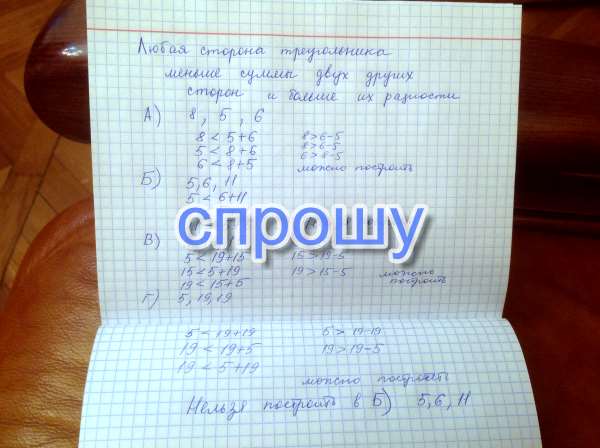 Любая сторона треугольника
меньше суммы двух других
сторон и больше их разности
А) 8, 5, 6
8 < 5+6 8 > 6-5
5 < 8+6 8 > 6-5
6 < 8+5 6 > 8-5
можно построить
Б) 5, 6, 11
5 < 6+11
спрошу
В)
5 < 19+15 15 > 19-5
15 < 5+19 19 > 15-5 можно
19 < 15+5 построить
Г) 5, 19, 19
5 < 19+19 5 > 19-19
19 < 19+5 19 > 19-5
19 < 5+19
можно построить
Нельзя построить в Б) 5, 6, 11